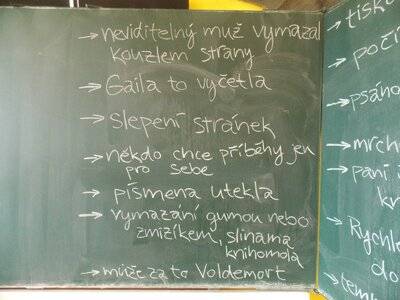 → neviditelný muž vymazal
kouzlem strany
→ Gaila to vyčetla
→ slepení stránek
→ někdo chce příběhy jen
pro sebe
→ písmena utekla
→ vymazání gumou nebo
zmizíkem, slinama
knihomola
→ může za to Voldemort
→ tisk
→ počí
→ psáno
→ mrch
→ paní
kn
→ Rychle
do
→ temn